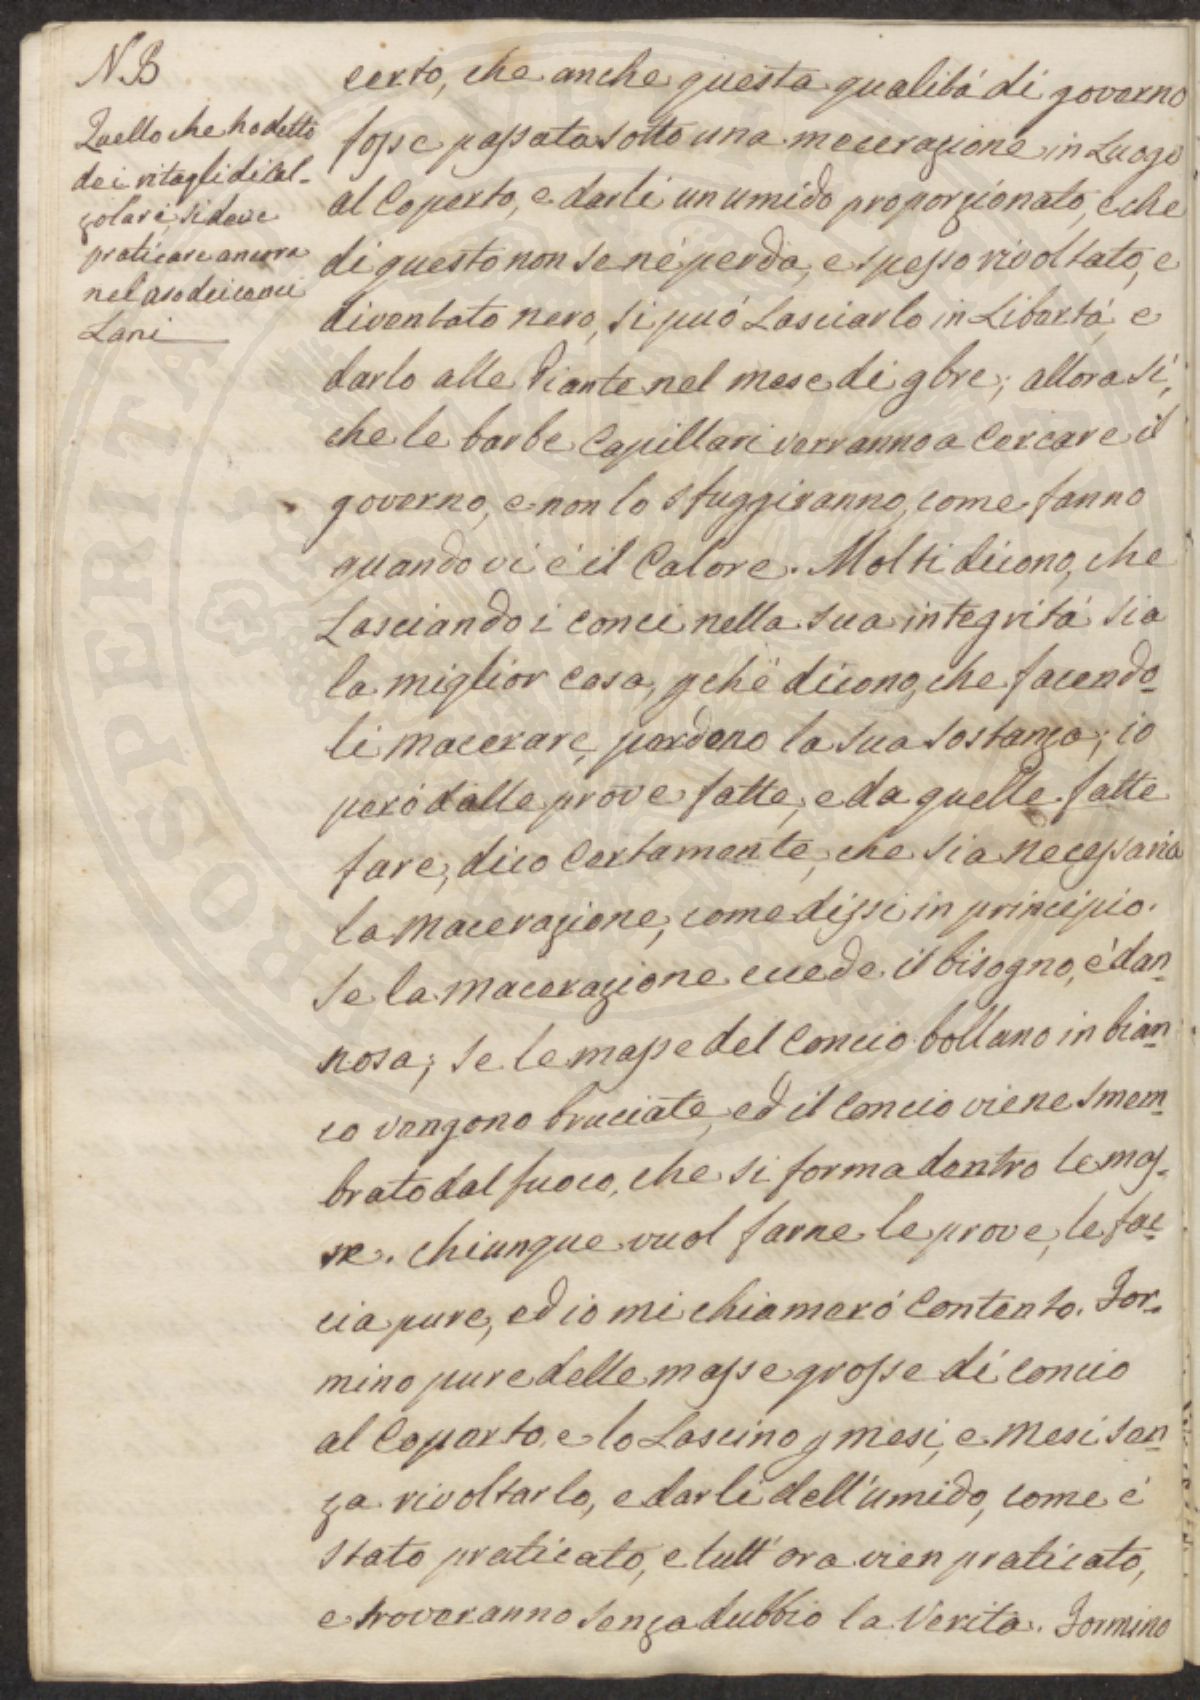 N.B
Quello che ho detto
dei ritagli di Cal-
zolari, si deve
praticare ancora
nel caso dei conci
Lani
certo, che anche questa qualitá di governo
fosse passata sotto una macerazione in Luogo
al Coperto, e darli un umido proporzionato, e che
di questo non se né perda, e spesso rivoltato, e
diventato nero, si puó Lasciarlo in Libertá, e
darlo alle Piante nel mese di 9bre; allora sí,
che le barbe Capillari verranno a Cercare il
governo, e non lo sfuggiranno, come fanno
quando vi é il Calore. Molti dicono, che
Lasciando i conci nella sua integritá sia
la miglior cosa, pché dicono, che facendo-
li macerare, perdono la sua sostanza; io
peró dalle prove fatte, e da quelle fatte
fare, dico Certamente, che sia necessaria
la macerazione, come dissi in principio.
Se la macerazione eccede il bisogno, é dan-
nosa; se le masse del Concio bollano in bian-
co vengono bruciate, ed il Concio viene smem-
brato dal fuoco, che si forma dentro le mas-
se. Chiunque vuol farne le prove, le fac-
cia pure, ed io mi chiameró Contento. For-
mino pure delle masse grosse di concio
al Coperto, e lo Lascino p mesi, e mesi sen-
za rivoltarlo, e darli dell'umido, come é
stato praticato, e tutt'ora vien praticato,
e troveranno senza dubbio la Verita. Formino